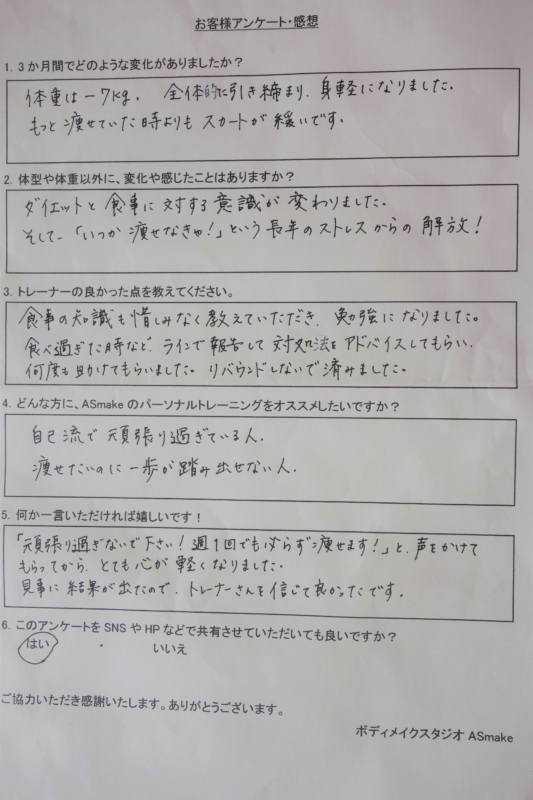 お客様アンケート・感想
1. 3か月間でどのような変化がありましたか？
体重は−7kg。 全体的に引き締まり、身軽になりました。
もっと痩せていた時よりもスカートが緩いです。
2. 体型や体重以外に、変化や感じたことはありますか？
ダイエットと食事に対する意識が変わりました。
そして「いつか痩せなきゃ！」という長年のストレスからの解放！
3. トレーナーの良かった点を教えてください。
食事の知識も惜しみなく教えていただき、勉強になりました。
食べ過ぎた時など、ラインで報告して対処法をアドバイスしてもらい、
何度も助けてもらいました。リバウンドしないで済みました。
4. どんな方に、ASmakeのパーソナルトレーニングをオススメしたいですか？
自己流で頑張り過ぎている人。
痩せたいのに一歩が踏み出せない人。
5. 何か一言いただければ嬉しいです！
「頑張り過ぎないで下さい！週1回でも必らず痩せます！」と、声をかけて
もらってから、とても心が軽くなりました。
見事に結果が出たので、トレーナーさんを信じて良かったです。
6. このアンケートをSNSやHPなどで共有させていただいても良いですか？
はい ・ いいえ
ご協力いただき感謝いたします。ありがとうございます。
ボディメイクスタジオ ASmake